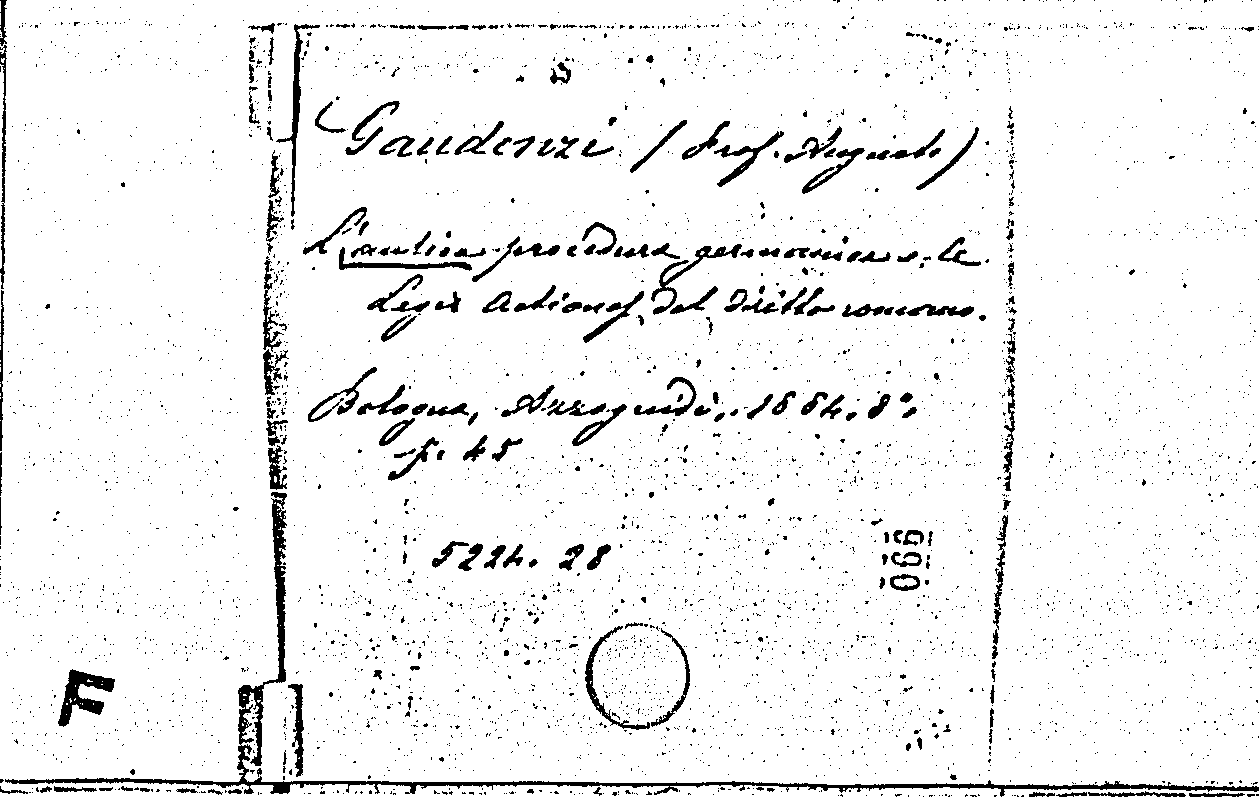 Gaudenzi (Prof. Augusto)
L'antica procedura germanica e le
Legis Actiones del diritto romano.
Bologna, Azzoguidi, 1884. 8º.
p. 45
5224. 28
066
F